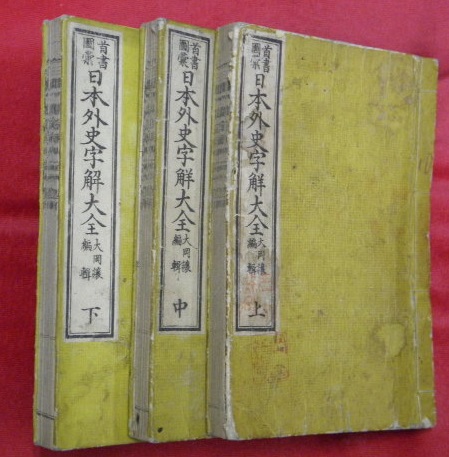 首書
圖彙
日本外史字觧大全
大岡讓
編輯
上
首書
圖彙
日本外史字觧大全
大岡讓
編輯
中
首書
圖彙
日本外史字解大全
大岡讓
編輯
下